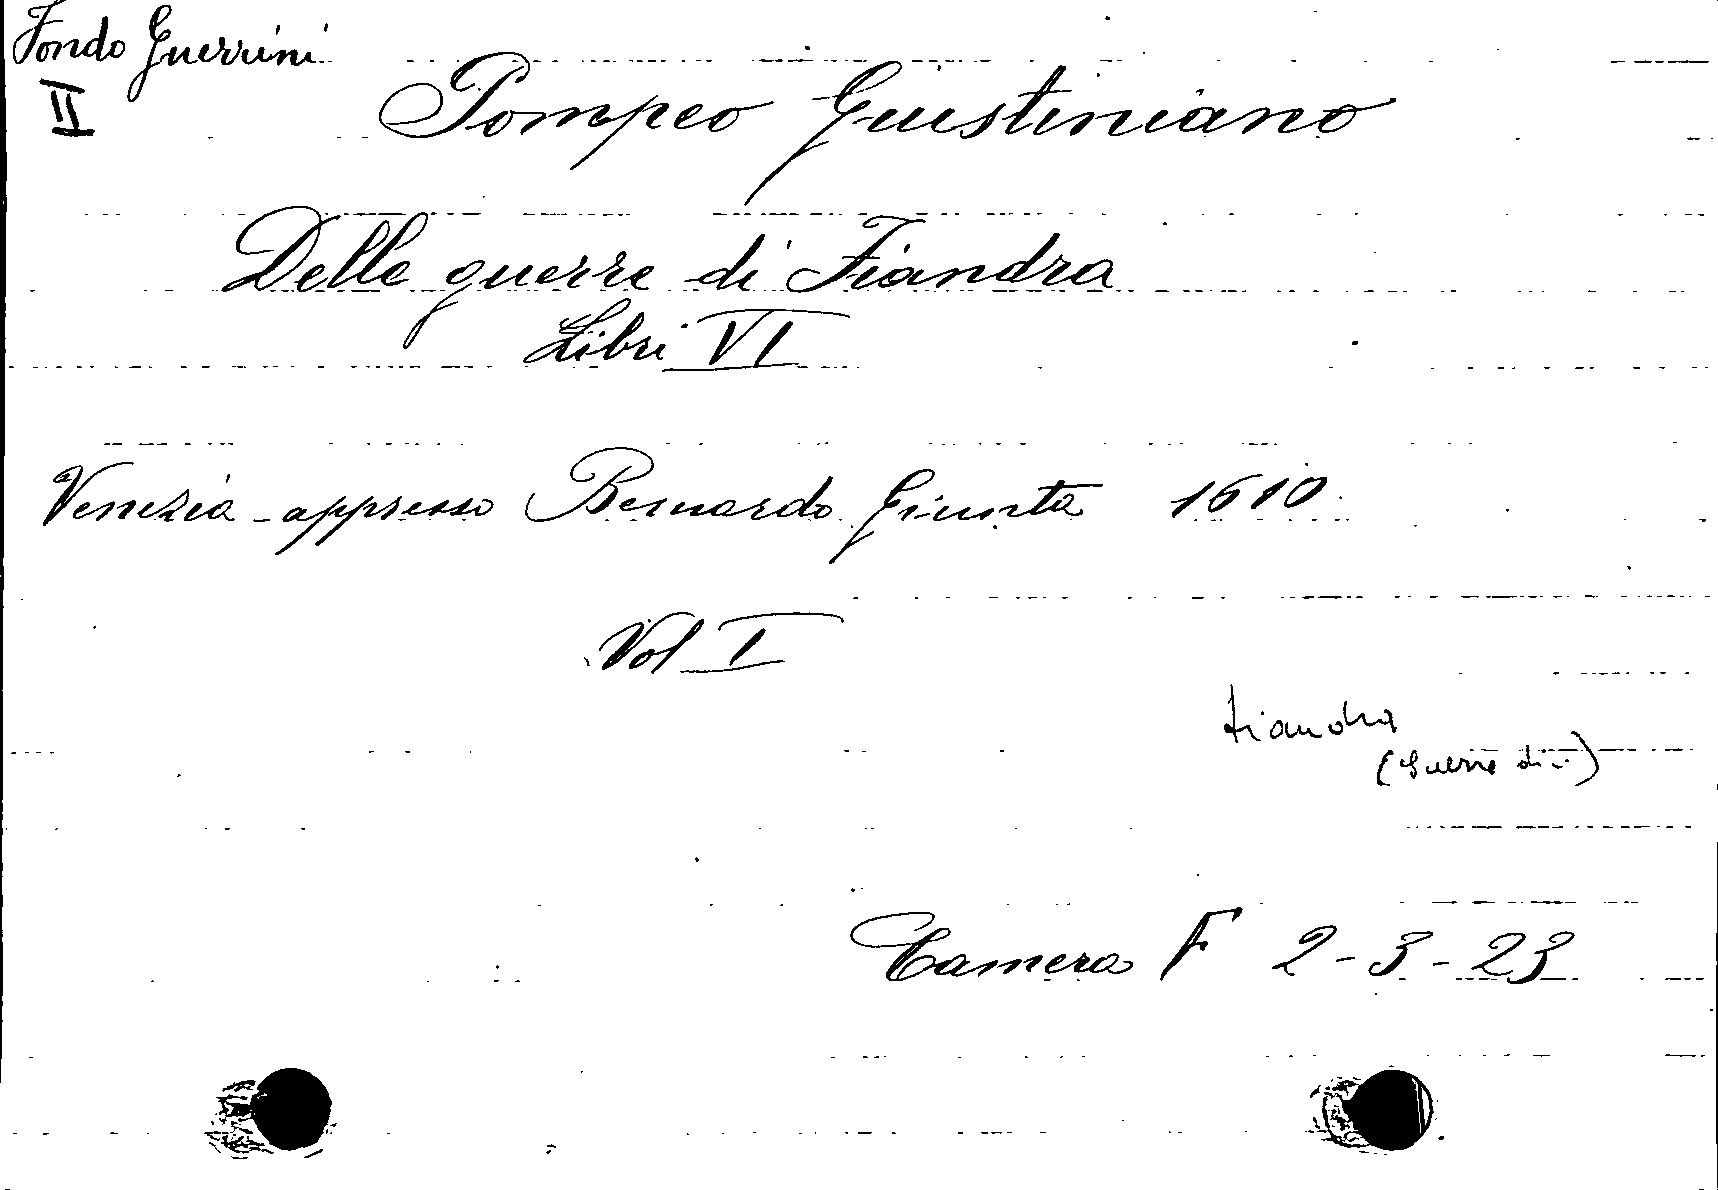 Fondo Guerrini
II
Pompeo Giustiniano
Delle guerre di Fiandra
Libri VI
Venezia - appresso Bernardo Giunta 1610
Vol I
Fiandra
(Guerre di..)
Camera F 2-3-23